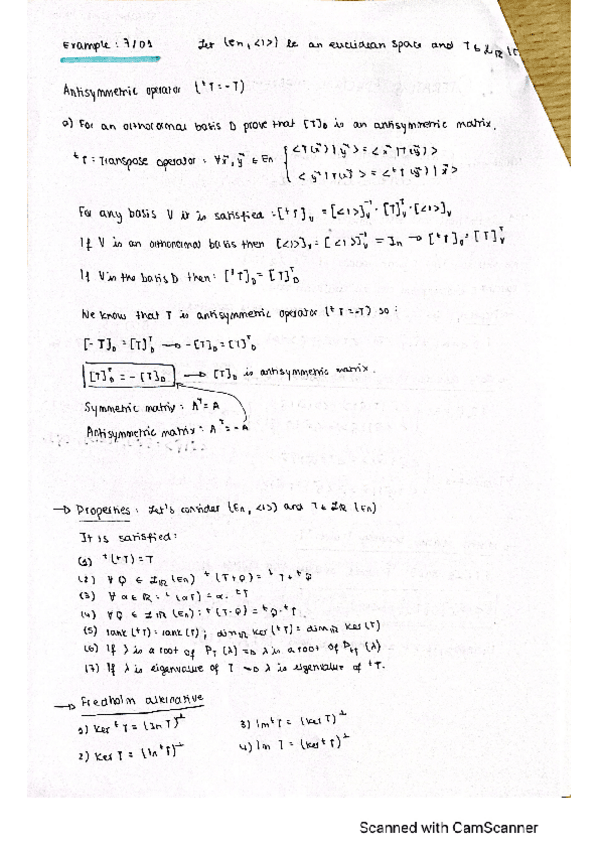 Example: 7/01 Let (En, <|>) be an euclidean space and T ∈ ℒ_ℝ (
Antisymmetric operator (ᵗT = -T)
a) For an orthonormal basis D prove that [T]_D is an antisymmetric matrix.
ᵗT = Transpose operator : ∀x⃗, y⃗ ∈ En { <T(x⃗) | y⃗> = <x⃗ | ᵗT(y⃗)>
< y⃗ | T(x⃗) > = <ᵗT(y⃗) | x⃗>
For any basis V it is satisfied : [ᵗT]_V = [<|>]_V⁻¹ · [T]_Vᵀ · [<|>]_V
If V is an orthonormal basis then [<|>]_V = [<|>]_V⁻¹ = In → [ᵗT]_V = [T]_Vᵀ
If V is the basis D then : [ᵗT]_D = [T]_Dᵀ
We know that T is antisymmetric operator (ᵗT = -T) so :
[-T]_D = [T]_Dᵀ → -[T]_D = [T]_Dᵀ
[T]_Dᵀ = -[T]_D → [T]_D is antisymmetric matrix.
Symmetric matrix : Aᵀ = A
Antisymmetric matrix : Aᵀ = -A
→ Properties : Let's consider (En, <|>) and T ∈ ℒ_ℝ (En)
It is satisfied :
(1) ᵗ(ᵗT) = T
(2) ∀ Q ∈ ℒ_ℝ (En) ᵗ(T+Q) = ᵗT + ᵗQ
(3) ∀ α ∈ ℝ : ᵗ(αT) = α · ᵗT
(4) ∀ Q ∈ ℒ_ℝ (En) : ᵗ(T·Q) = ᵗQ · ᵗT
(5) rank (ᵗT) = rank (T) ; dim_ℝ Ker (ᵗT) = dim_ℝ Ker (T)
(6) If λ is a root of P_T (λ) => λ is a root of P_ᵗT (λ)
(7) If λ is eigenvalue of T => λ is eigenvalue of ᵗT.
→ Fredholm alternative
1) Ker ᵗT = (Im T)^⊥ 3) Im ᵗT = (Ker T)^⊥
2) Ker T = (Im ᵗT)^⊥ 4) Im T = (Ker ᵗT)^⊥
Scanned with CamScanner